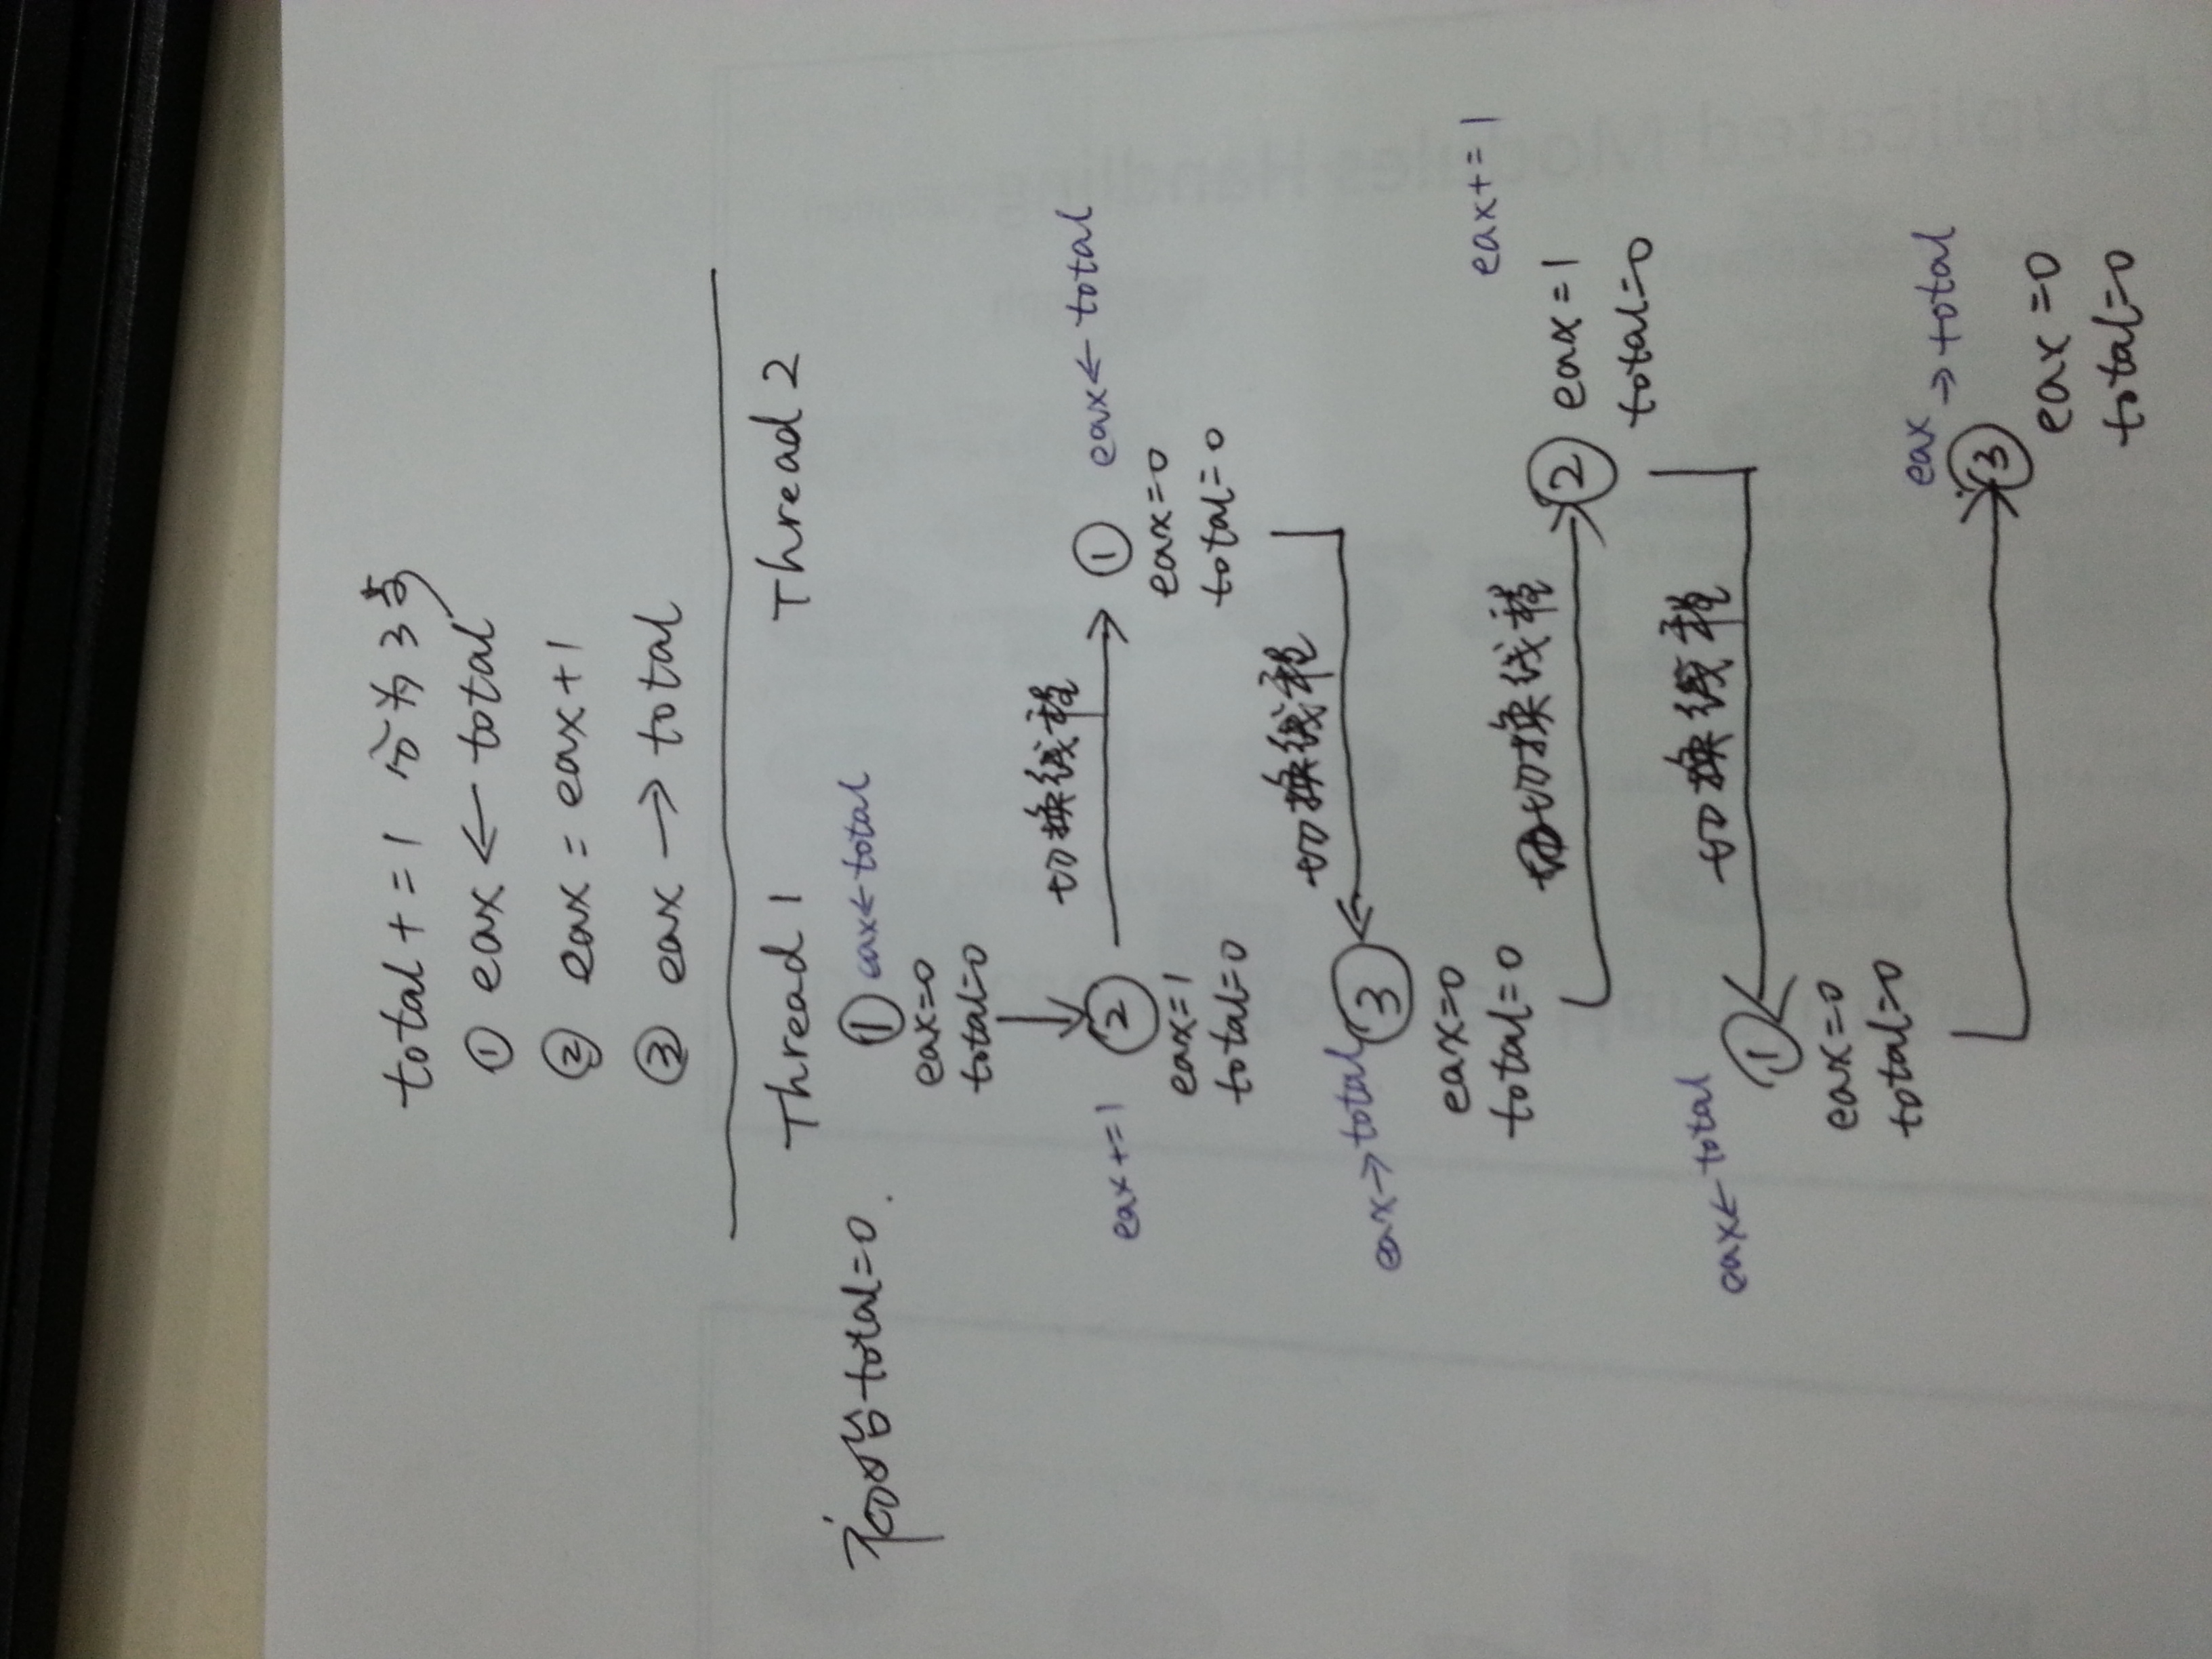 total += 1 分为3步
① eax ← total
② eax = eax + 1
③ eax → total
Thread 1 Thread 2
初始total=0.
① eax←total
eax=0
total=0
eax+=1
②
eax=1
total=0
切换线程
① eax←total
eax=0
total=0
切换线程
eax→total
③
eax=0
total=0
切换线程
eax+=1
② eax=1
total=0
切换线程
eax←total
①
eax=0
total=0
eax→total
③
eax=0
total=0
Duplicated Modules Handling